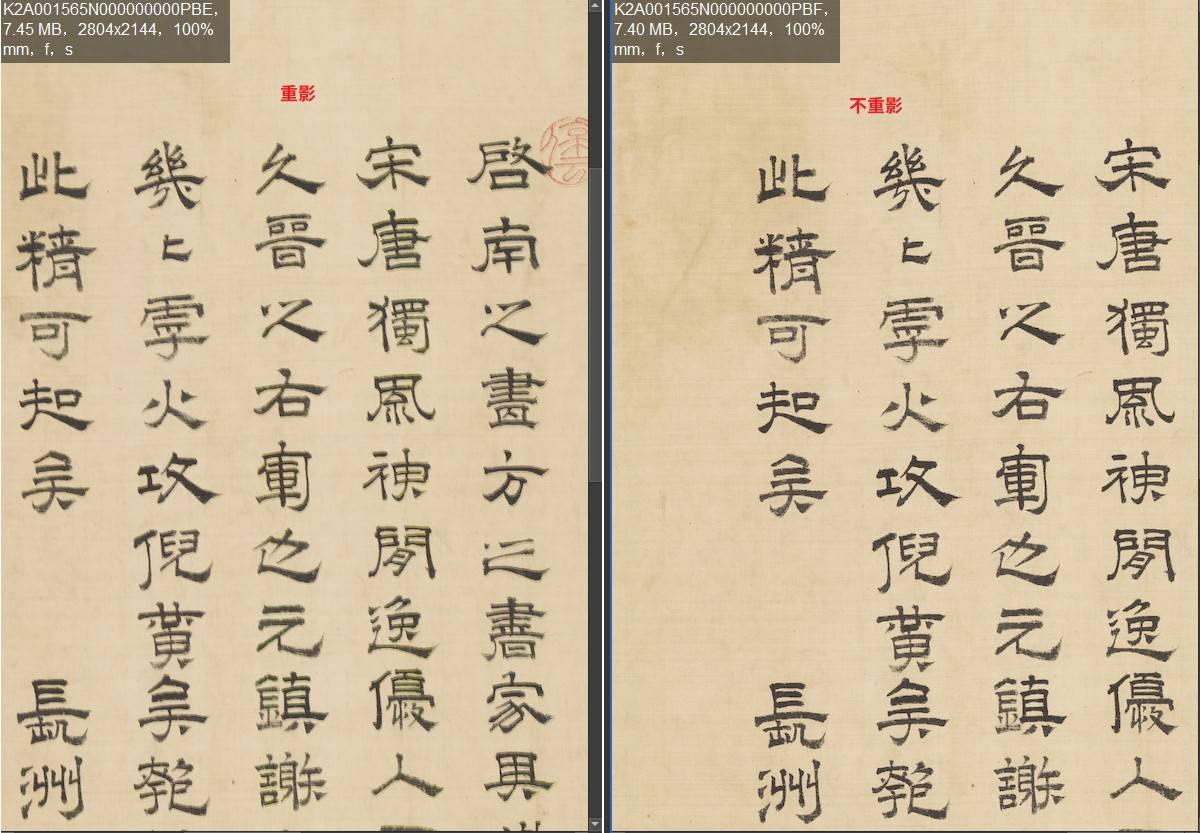 K2A001565N000000000PBE,
7.45 MB, 2804x2144, 100%
mm, f, s
重影
啓南之畫方之書家其
宋唐獨凮神閒逸優人
久晉之右軍也元鎮謝
幾〻虖火攻倪黃矣匏
此精可知矣 長洲
K2A001565N000000000PBF,
7.40 MB, 2804x2144, 100%
mm, f, s
不重影
宋唐獨凮神閒逸優人
久晉之右軍也元鎮謝
幾〻虖火攻倪黃矣匏
此精可知矣 長洲